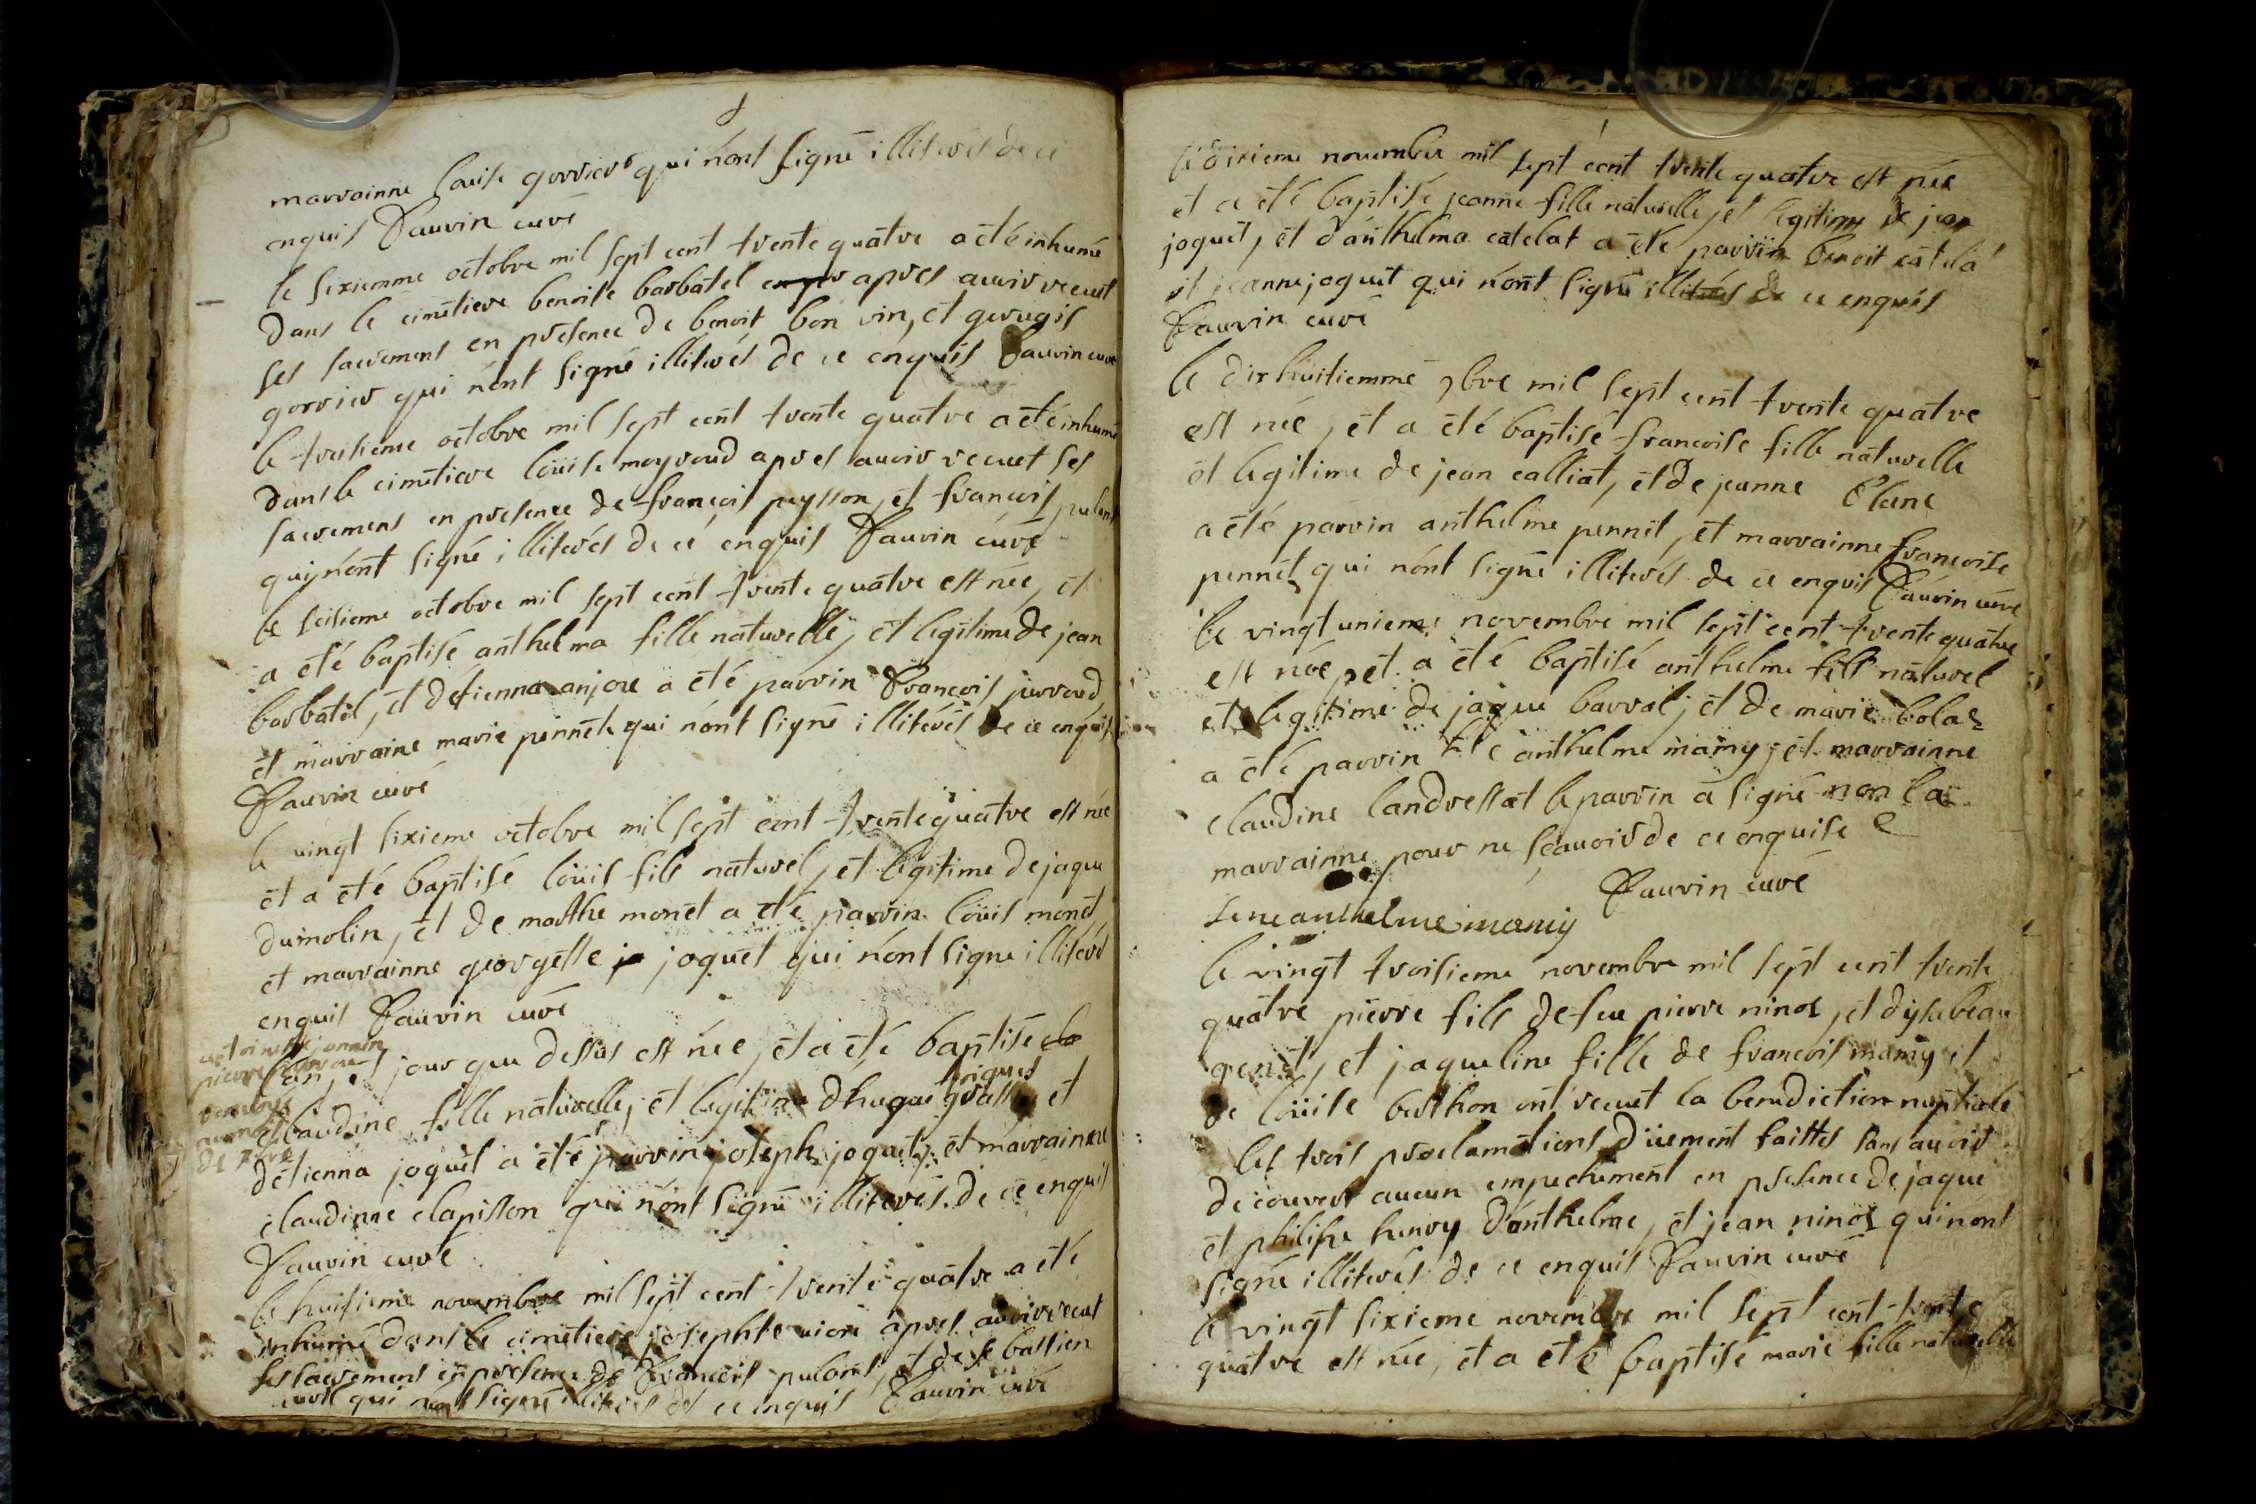 marrainne louise gorrier qui n'ont signé illiterés de ce
enquis Faurin curé
le sixiemme octobre mil sept cent trente quatre a eté inhumé
dans le cimetiere benoite barbatel apres auoir recut
ses sacremens en presence de benoit bon vin, et
gorrier qui n'ont signé illiterés de ce enquis Faurin curé
le treisieme octobre mil sept cent trente quatre a eté inhumé
dans le cimetiere loüise meyroud apres auoir recut ses
sacremens en presence de francois peysson, et francois
qui n'ont signé illiterés de ce enquis Faurin curé
le seisieme octobre mil sept cent trente quatre est née, et
a eté baptisé anthelma fille naturelle, et legitime de jean
barbatel, et detienna anjoue a eté parrin francois
et marraine marie pennet qui n'ont signé illiterés de ce enquis
Faurin curé
le vingt sixieme octobre mil sept cent trente quatre est née
et a eté baptisé loüis fils naturel, et legitime de jaque
dumolin, et de marthe monet a eté parrin loüis monet
et marrainne georgette joquet qui n'ont signé illiterés
enquis Faurin curé
l'an, et jour que dessus est née, et a eté baptisé
claudine fille naturelle, et legitime d'hugue
detienna joquet a eté parrin joseph joquet, et marrainne
claudinne clapisson qui n'ont signé illiterés de ce enquis
Faurin curé
le huitieme novembre mil sept cent trente quatre a eté
inhumé dans le cimetiere apres auoir recut
ses sacremens en presence de francois et de sebastien
qui n'ont signé illiterés de ce enquis Faurin curé
novembre mil sept cent trente quatre est née
et a eté baptisé jeanne fille naturelle, et legitime de jean
joquet, et d'anthelma catelat a eté parrin benoit catela
et jeanne joquet qui n'ont signé illiterés de ce enquis
Faurin curé
le dix huitiemme 9bre mil sept cent trente quatre
est née, et a eté baptisé francoise fille naturelle
et legitime de jean calliat, et de jeanne
a eté parrin anthelme pennet, et marrainne francoise
pennet qui n'ont signé illiterés de ce enquis Faurin curé
le vingt unieme novembre mil sept cent trente quatre
est née, et a eté baptisé anthelme fils naturel
et legitime de jaque barral, et de marie bolaz
a eté parrin anthelme mamy, et marrainne
claudine landressat le parrin a signé non la
marrainne pour ne sçauoir de ce enquise
Faurin curé
anthelme mamy
le vingt troisieme novembre mil sept cent trente
quatre pierre fils de feu pierre ninoz, et d'ysabeau
genet, et jaqueline fille de francois mamy et
de loüise berthon ont recut la benediction nuptiale
les trois proclamations düement faittes sans auoir
decouvert aucun empechement en presence de jaque
et philipe henry d'anthelme, et jean ninoz qui n'ont
signé illiterés de ce enquis Faurin curé
le vingt sixieme novembre mil sept cent trente
quatre est née, et a eté baptisé marie fille naturelle